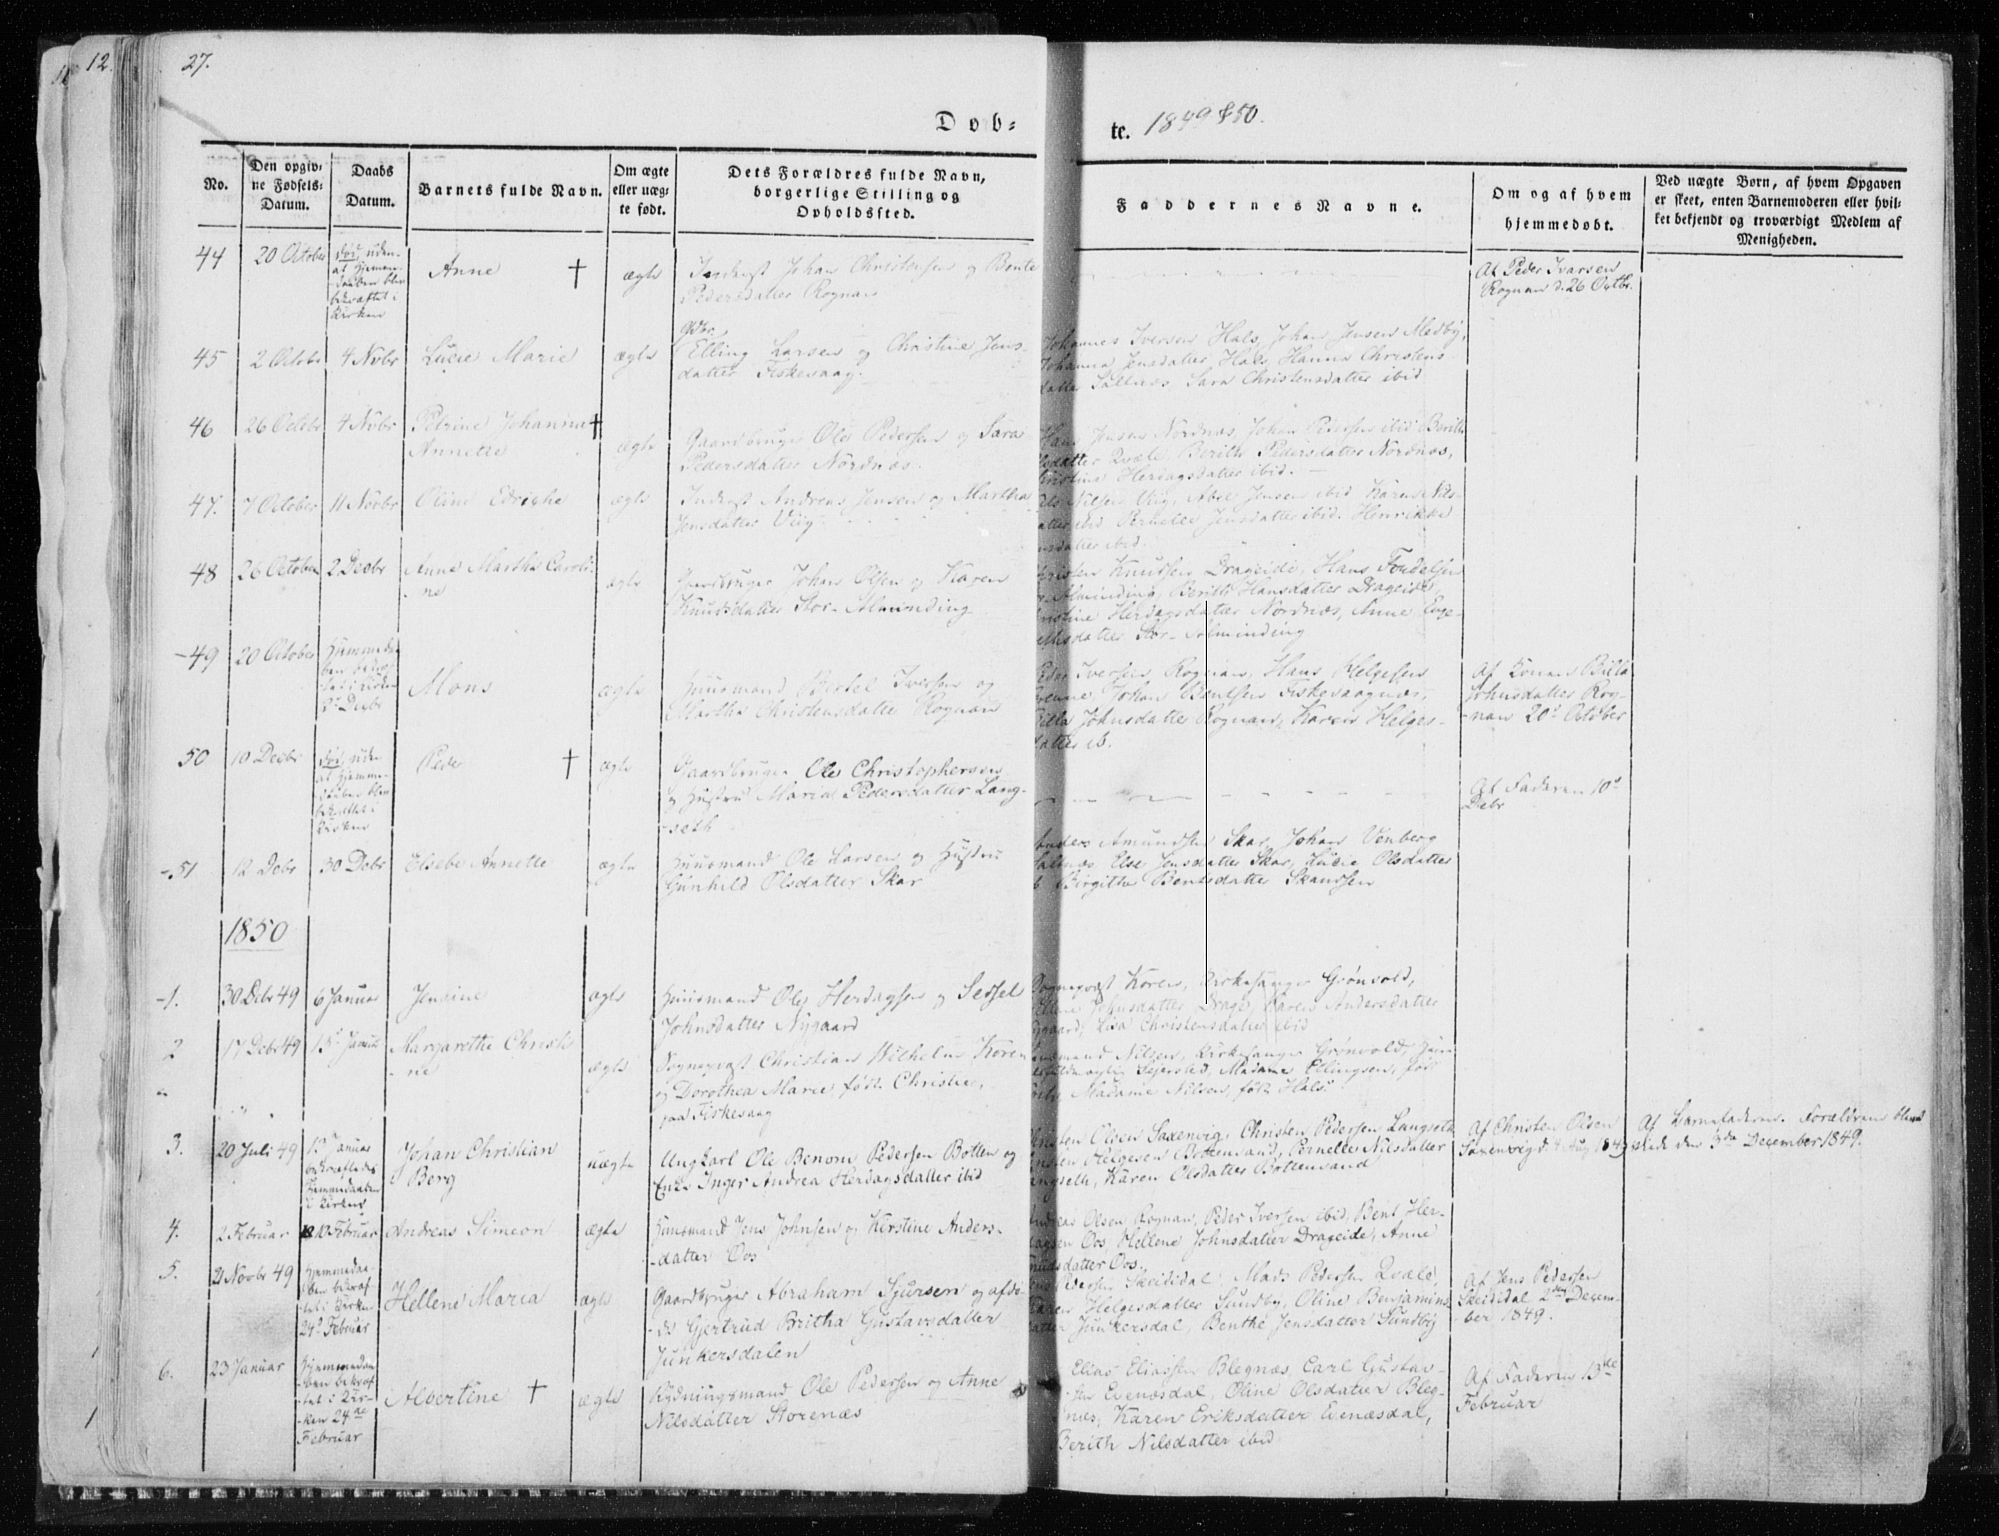 12.
27.
Døb-
te. 1849 & 50.
No.
Den opgiv-
ne Fødsels-
Datum.
Daabs
Datum.
Barnets fulde Navn.
Om ægte
eller uæg-
te født.
Dets Forældres fulde Navn,
borgerlige Stilling og
Opholdssted.
Faddernes Navne.
Om og af hvem
hjemmedøbt.
Ved uægte Børn, af hvem Opgaven
er skeet, enten Barnemoderen eller hvil-
ket bekjendt og troværdigt Medlem af
Menigheden.
44
20 October
død, uden
at Hjemme-
daaben blev
bekræftet i
Kirken
Anne †
ægte
Inderst Johan Christensen og Bente
Pedersdatter Rognan
Af Peder Ivarsen
Rognan d. 26 Octbr.
45
2 Octobr
4 Novbr
Lucie Marie
ægte
Gdbr
Elling Larsen og Christine Jens-
datter Fiskevaag.
Johannes Iversen Hals, Johan Jensen Medby,
Johanna Jensdatter Hals, Hanna Christens-
datter Saltnes Sara Christensdatter ibid
46
26 Octobr
4 Novbr
Petrine Johanna †
Annette
ægte
Gaardbruger Ole Pedersen og Sara
Pedersdatter Nordnæs.
Hans Jensen Nordnæs, Johan Pedersen ibid Berith
Olsdatter Qvæle, Berith Pedersdatter Nordnæs,
Christina Herdagsdatter ibid.
47.
7 October
11 Novbr
Oline Edrighe
ægte
Inderst Andreas Jensen og Martha
Jensdatter Viig
Nils Nilsen Viig, Abel Jensen ibid Karen Nils-
datter ibid Pernelle Jensdatter ibid. Henrikke
Jensdatter ibid.
48
26 October
2 Decbr
Anne Martha Caroli-
ne
ægte
Gaardbruger Johan Olsen og Karen
Knudsdatter Stor-Alminding
Christen Knudsen Drageide, Hans
Alminding, Berith Hansdatter Drageide,
Christine Herdagsdatter Nordnæs, Anne
Stor-Alminding
-49
20 October
Hjemmedaa-
ben bekræf-
tet i Kirken
2 Decbr
Mons
ægte
Huusmand Bertel Iversen og
Martha Christensdatter Rognan
Peder Iversen Rognan, Hans Helgesen
Johan Bentsen Fiskevaagnæs,
Johnsdatter Rognan, Karen Helges-
datter ib.
Af Konen
Johnsdatter Rog-
-nan 20d October
50
10 Decbr
død, uden
at Hjemme-
daaben blev
bekræftet i
Kirken
Peder †
ægte
Gaardbruger Ole Christophersen
og Hustru Maria Pedersdatter Lang-
-seth
Af Faderen 10d
Debr
-51
12 Debr
30 Debr
Elsebe Annette
ægte
Huusmand Ole Larsen og Hustru
Gunhild Olsdatter Skar
Anders Amundsen Skar, Johan Venberg
Saltnæs Else Jensdatter Skar, Lucie Olsdatter
Birgitta Bentsdatter Skandsen
1850
-1.
30 Debr 49
6 Januar
Jensine
ægte
Huusmand Ole Herdagsen og Sessel
Johnsdatter Nygaard
Sognepræst Koren, Kirkesanger Grønvold,
Hellene Johnsdatter Drage, Karen Andersdatter
Nygaard, Lisa Christensdatter ibid
2
17 Debr 49
13d Januar
Margarethe Christi-
ne
ægte
Sognepræst Christian Wilhelm Koren
og Dorothea Marie, født Christie,
paa Fiskevaag
Nilsen, Kirkesanger Grønvold,
Madame Ellingsen, født
Madame Nilsen, født Hals.
3.
20 Juli 49
13 Januar
bekræftedes
Hjemmedaaben
i Kirken
Johan Christian
Berg
uægte
Ungkarl Ole Benom Pedersen Botten og
Enke Inger Andrea Herdagsdatter ibid
Christen Olsen Saxenvig, Christen Pedersen Langseth
Helgesen Bottensand, Pernelle Nilsdatter
Langseth, Karen Olsdatter Bottensand
Af Christen Olsen
Saxenvig d. 4 Aug 1849
Af Barnefaderen. Forældrene bleve
viede den 3die December 1849.
4.
2 Februar
10 Februar
Andreas Simeon
ægte
Huusmand Jens Johnsen og Kirstine Anders-
-datter Oos
Andreas Olsen Rognan, Peder Iversen ibid, Bent Her-
dagsen Oos, Hellene Johnsdatter Drageide, Anne
Knudsdatter Oos.
5.
21 Novbr 49
Hjemmedaa-
ben bekræf-
tet i Kirken
24d Februar
Hellene Maria
ægte
Gaardbruger Abraham Sjursen og afdø-
-de Gjertrud Britha Gustavsdatter
Junkersdalen
Jens Pedersen Skeididal, Mads Pedersen Qvæle,
Karen Helgesdatter Sundby, Oline Benjamins-
datter Junkersdal, Benthe Jensdatter Sundby
Af Jens Pedersen
Skeididal 2den Decem-
-ber 1849.
6.
23 Januar
Hjemmedaa-
-ben bekræf-
-tet i Kir-
-ken 24de
Februar
Albertine †
ægte
Rydningsmand Ole Pedersen og Anne
Nilsdatter Storenæs
Elias Eliassen Blegnæs, Carl Gustav-
-sen Evenæsdal, Oline Olsdatter Bleg-
næs, Karen Eriksdatter Evenæsdal,
Berith Nilsdatter ibid
Af Faderen 13de
Februar